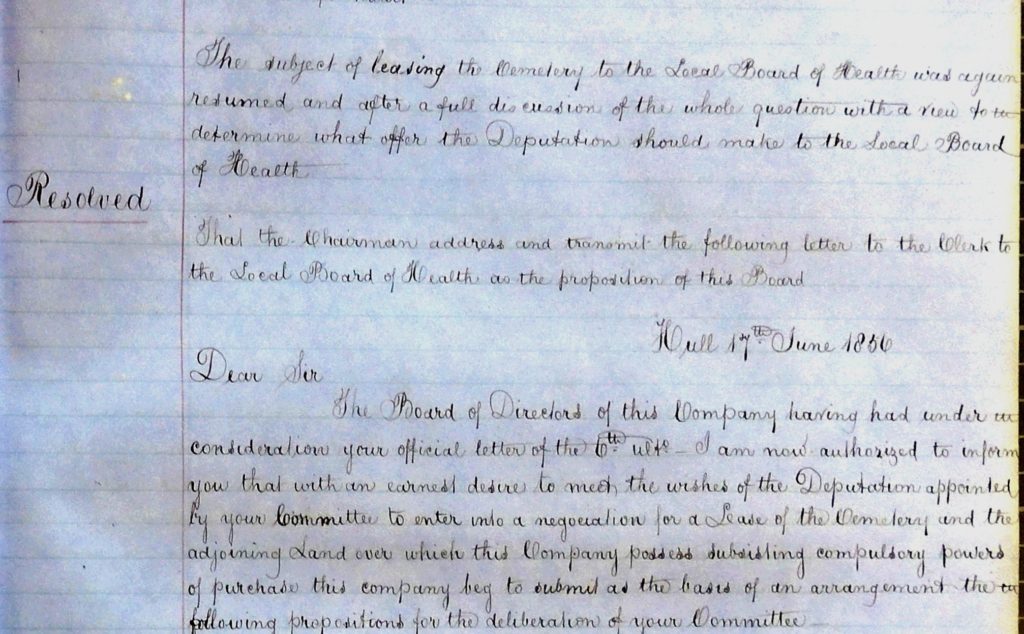 The subject of leasing the Cemetery to the Local Board of Health was again
resumed and after a full discussion of the whole question with a view to
determine what offer the Deputation should make to the Local Board
of Health
Resolved
That the Chairman address and transmit the following letter to the Clerk to
the Local Board of Health as the proposition of this Board
Hull 17th June 1856
Dear Sir
The Board of Directors of this Company having had under
consideration your official letter of the 6th ulto - I am now authorized to inform
you that with an earnest desire to meet the wishes of the Deputation appointed
by your Committee to enter into a negociation for a Lease of the Cemetery and the
adjoining Land over which this Company possess subsisting compulsory powers
of purchase this company beg to submit as the basis of an arrangement the
following propositions for the deliberation of your Committee -